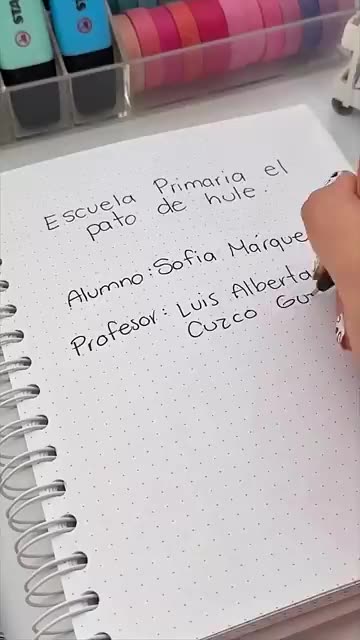 STA
Escuela Primaria el
pato de hule.
Alumno: Sofía Márque
Profesor: Luis Alberto
Cuzco Gu